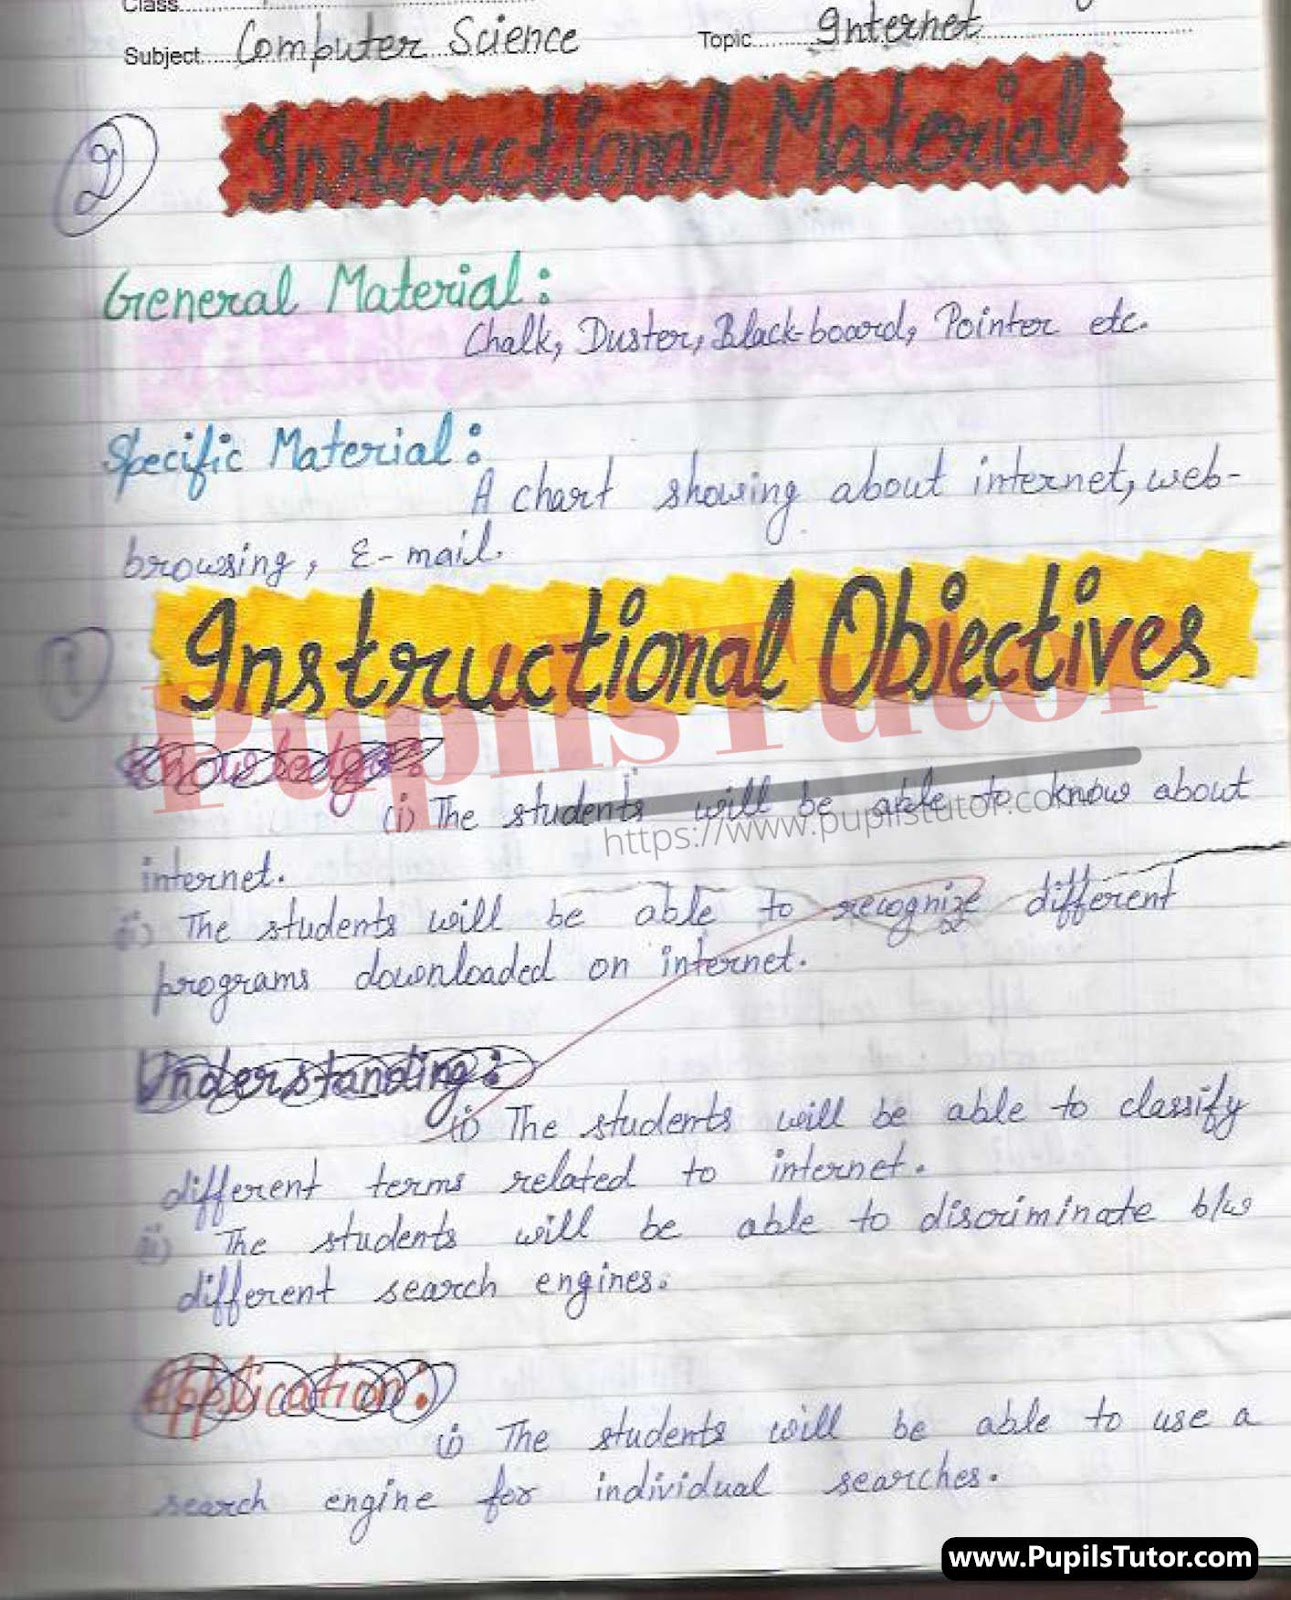 Class
Subject Computer Science Topic Internet
2
Instructional Material
General Material:
Chalk, Duster, Black-board, Pointer etc.
Specific Material:
A chart showing about internet, web-
browsing, E-mail.
1
Instructional Objectives
PupilsTutor
Knowledge:
(i) The students will be able to know about
https://www.pupilstutor.co
internet.
ii) The students will be able to recognize different
programs downloaded on internet.
Understanding:
(i) The students will be able to classify
different terms related to internet.
ii) The students will be able to discriminate b/w
different search engines.
Application:
(i) The students will be able to use a
search engine for individual searches.
www.PupilsTutor.com